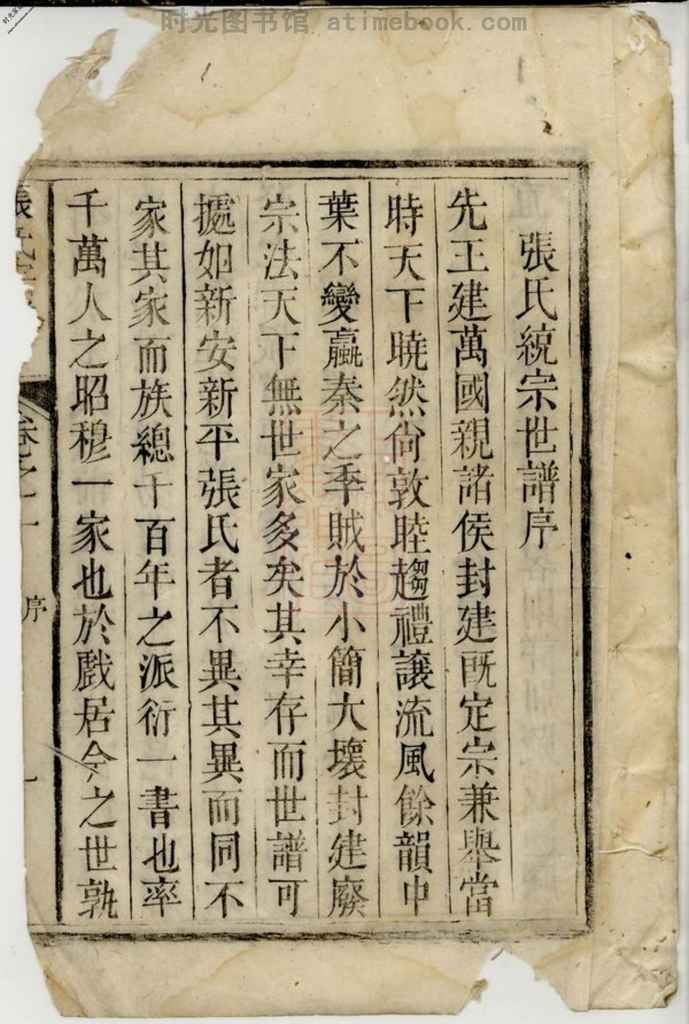 时光图书馆 atimebook.com
張氏統宗世譜序
先王建萬國親諸侯封建既定宗兼舉當
時天下曉然尚敦睦趨禮讓流風餘韻中
葉不變嬴秦之季賊於小簡大壞封建廢
宗法天下無世家多矣其幸存而世譜可
據如新安新平張氏者不異其異而同不
家其家而族總十百年之派衍一書也率
千萬人之昭穆一家也於戲居今之世孰
卷之一 序 一